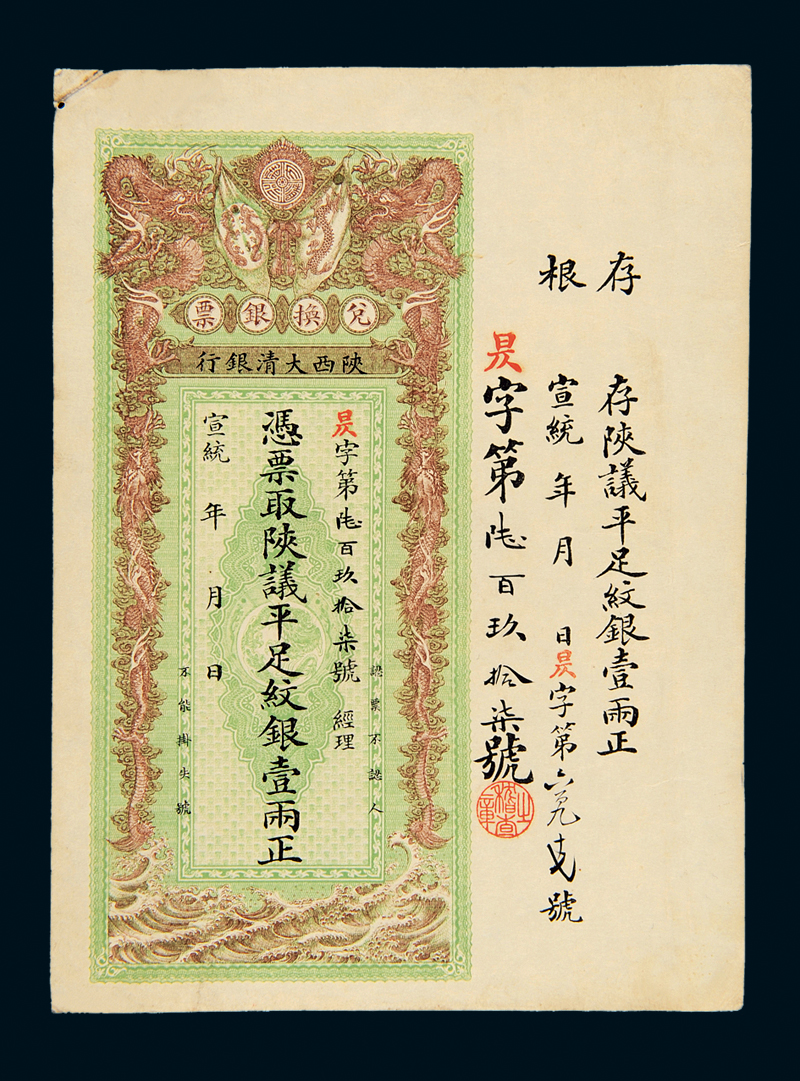 存根
存陝議平足紋銀壹兩正
宣統 年 月 日 昃字第六 號
昃字第陸百玖拾柒號
稽查之章
兌換銀票
陝西大清銀行
認票不認人
昃字第陸百玖拾柒號 經理
憑票取陝議平足紋銀壹兩正
宣統 年 月 日
不能掛失號